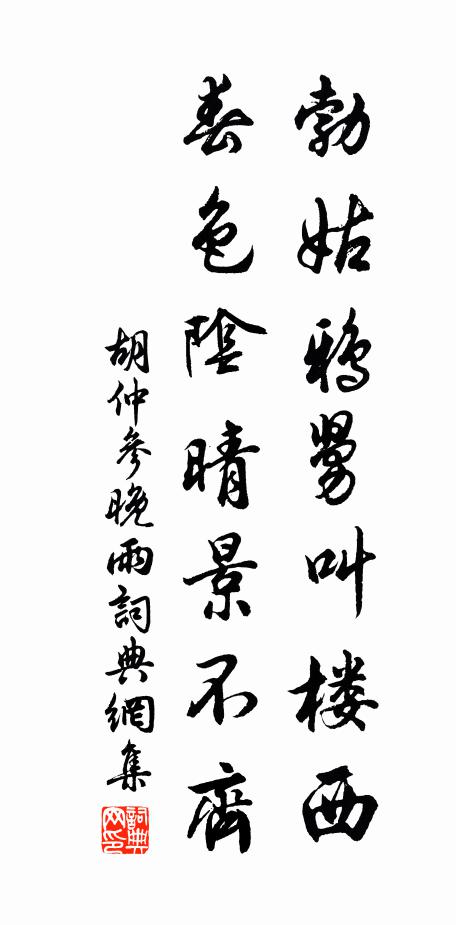 勃姑鴉舅叫楼西
春色陰晴景不齊
胡仲參晚雨詞典網集
詞典
网印